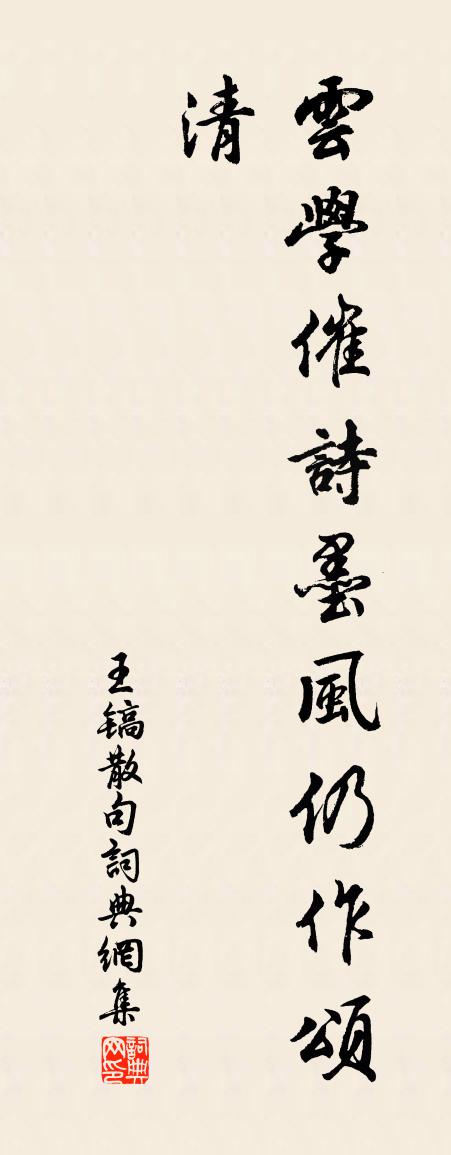 雲學催詩墨風仍作頌
清
王镐散句詞典網集
詞典网印